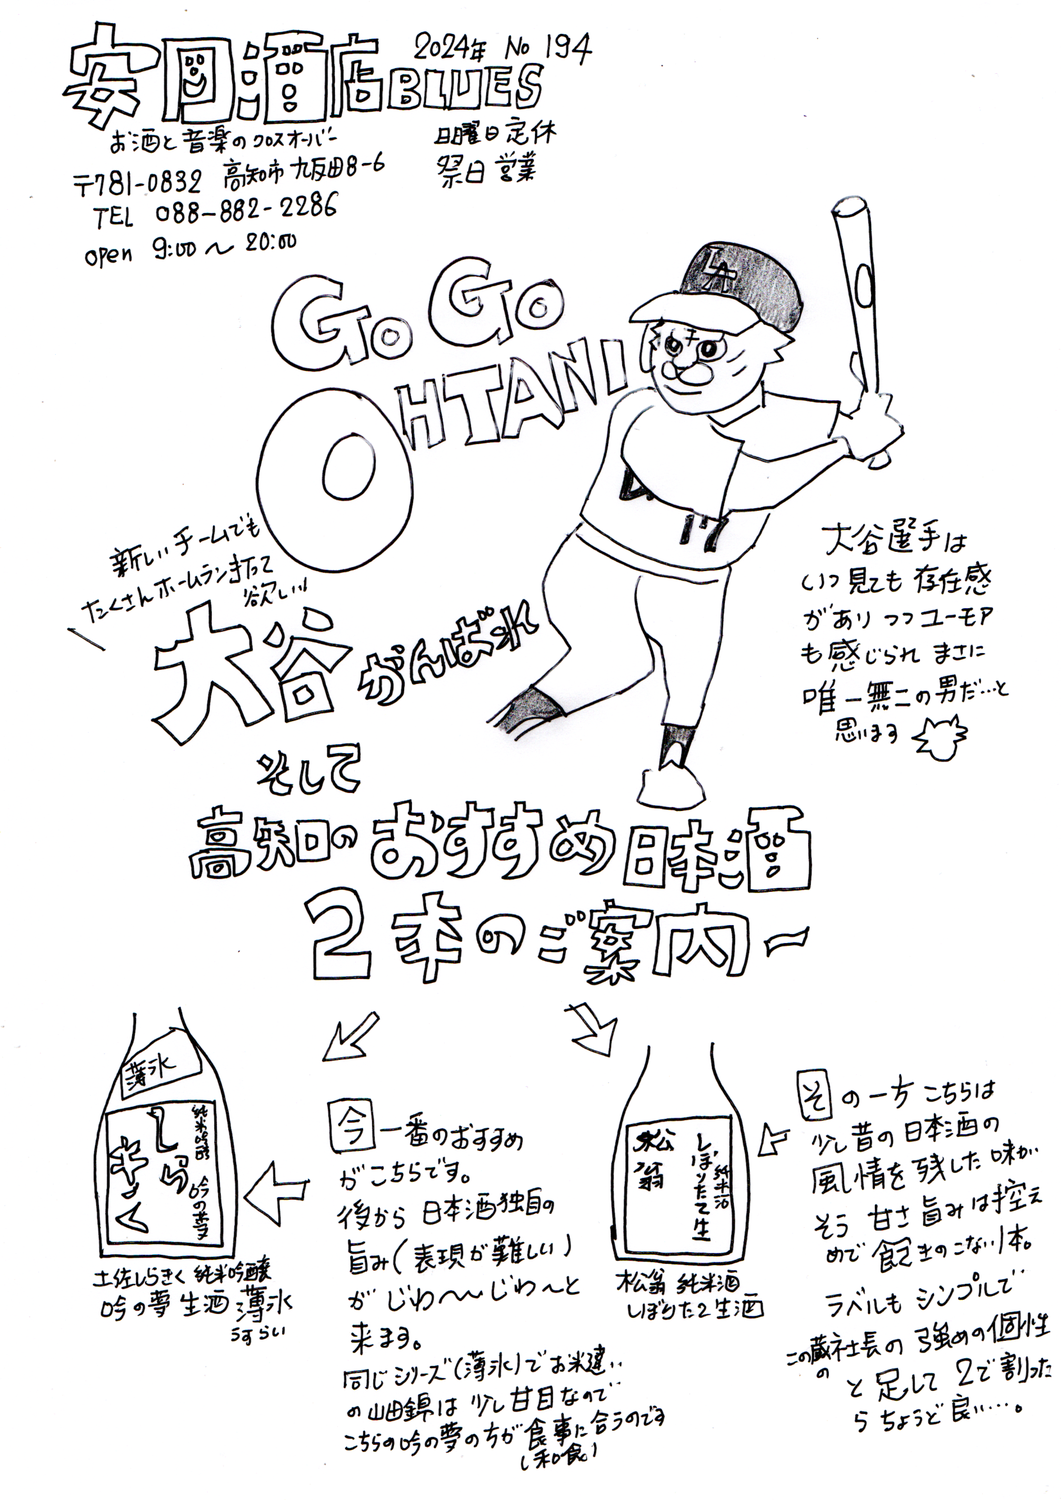 安岡酒店BLUES
2024年 No 194
お酒と音楽のクロスオーバー
〒781-0832 高知市九反田8-6
TEL 088-882-2286
open 9:00〜20:00
日曜日定休
祭日営業
GO GO
OHTANI
LA
17
新しいチームでも
たくさんホームラン打って
欲しい!!
大谷がんばれ
大谷選手は
いつ見ても存在感
がありつつユーモア
も感じられまさに
唯一無二の男だ…と
思います
そして
高知のおすすめ日本酒
2本のご案内ー
薄氷
純米吟醸
しら
ぎく
吟の夢
土佐しらぎく 純米吟醸
吟の夢 生酒 薄氷
うすらい
今一番のおすすめ
がこちらです。
後から日本酒独自の
旨み(表現が難しい)
がじわ〜〜じわ〜と
来ます。
同じシリーズ(薄氷)でお米違い
の山田錦は少し甘目なので
こちらの吟の夢の方が食事に合うのです
(和食)
松翁
純米酒
しぼりたて生
松翁 純米酒
しぼりたて生酒
その一方こちらは
少し昔の日本酒の
風情を残した味わい
そう甘さ旨みは控え
めで飽きのこない1本。
ラベルもシンプルで
この蔵の社長の強めの個性
と足して2で割った
らちょうど良い…。